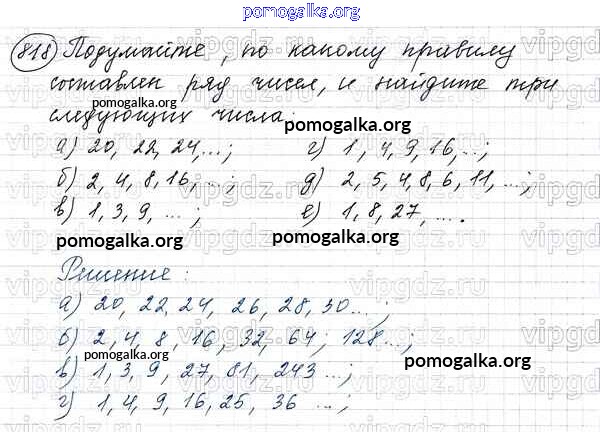 pomogalka.org
818) Подумайте, по какому правилу
составлен ряд чисел, и найдите три
pomogalka.org
следующих числа:
pomogalka.org
а) 20, 22, 24, ...; г) 1, 4, 9, 16, ...;
б) 2, 4, 8, 16, ...; д) 2, 5, 4, 8, 6, 11, ...;
в) 1, 3, 9, ...; е) 1, 8, 27, ....
pomogalka.org pomogalka.org
Решение:
а) 20, 22, 24, 26, 28, 30...;
б) 2, 4, 8, 16, 32, 64; 128...;
pomogalka.org pomogalka.org
в) 1, 3, 9, 27, 81, 243 ...;
г) 1, 4, 9, 16, 25, 36 ...;
pomogalka.org
vipgdz.ru